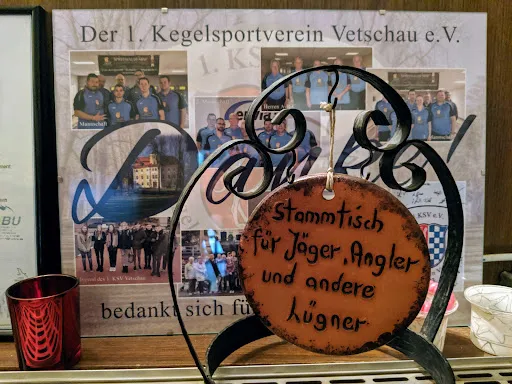 Der 1. Kegelsportverein Vetschau e.V.
1. KSV
Mannschaft
Danke!
KSV e.V.
BU
Stammtisch
für Jäger, Angler
und andere
Lügner
bedankt sich fü